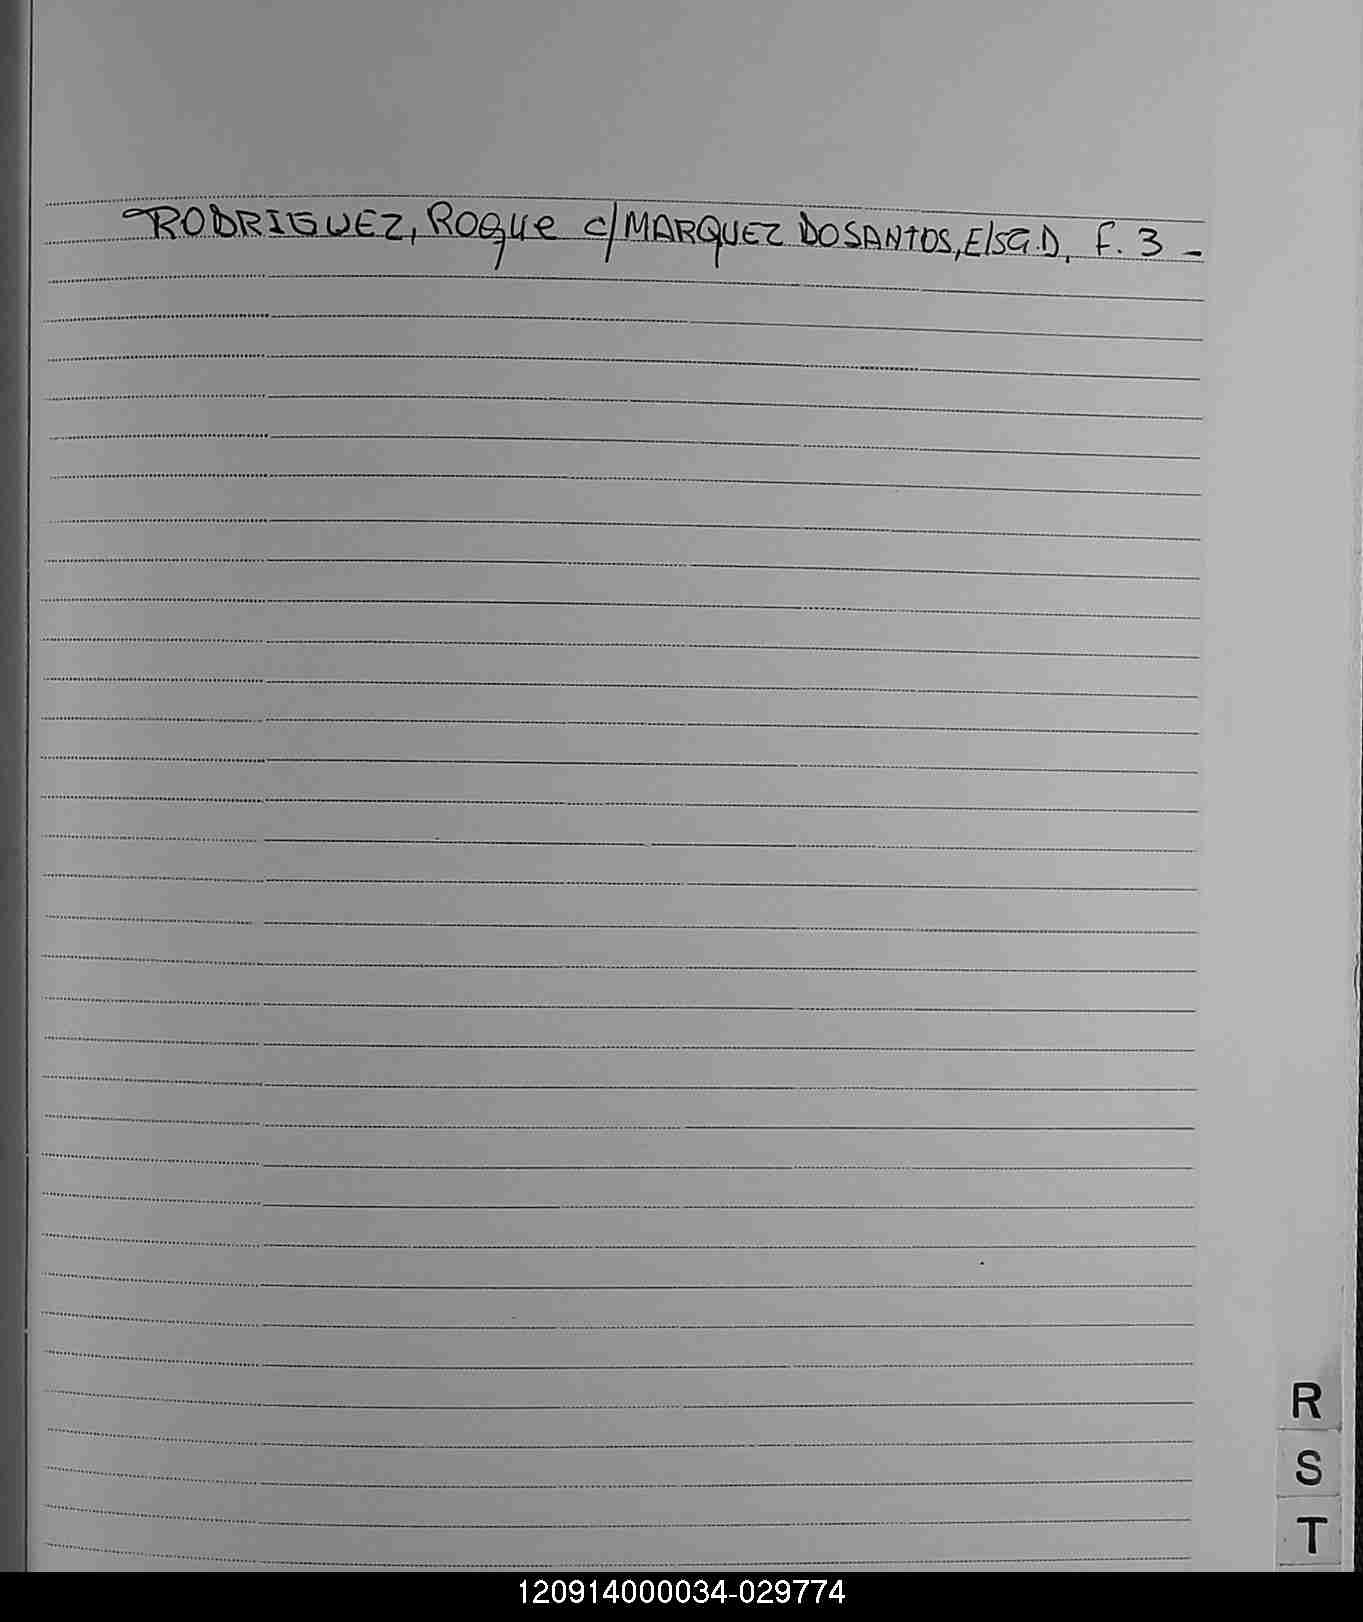 RODRIGUEZ, Roque c/ MARQUEZ DOSANTOS, Elsa.D, F. 3 -
R
S
T
120914000034-029774